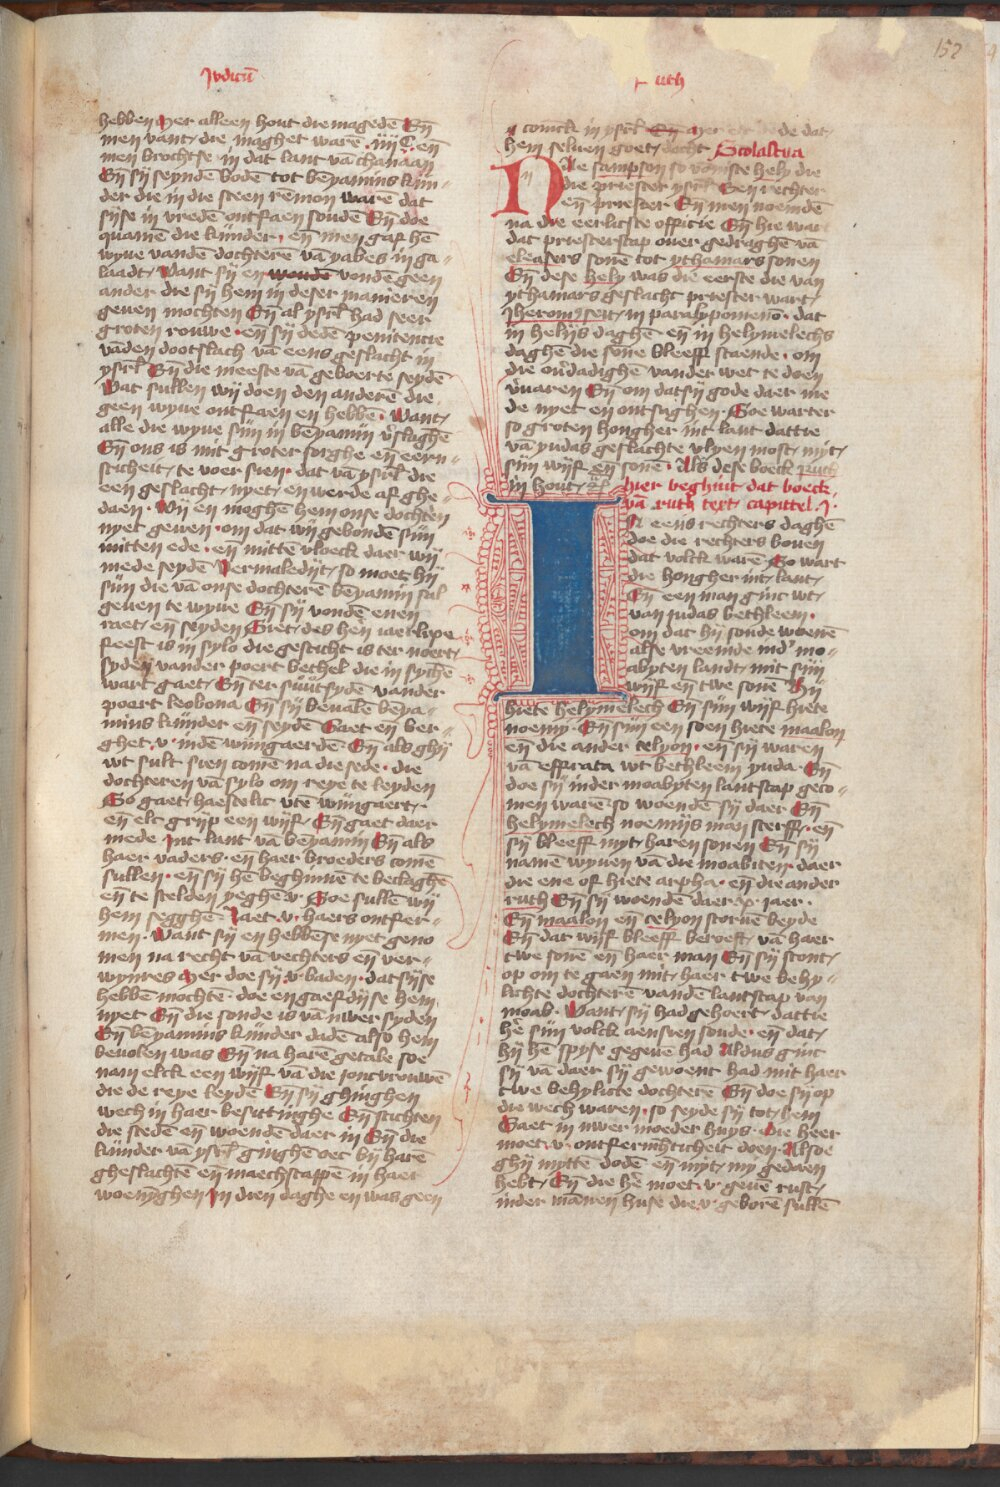 Judicū
ruth
152
hebben Mer alleen hout die magedē Eñ
men vant die maghet warē .iiijC. eñ
men brochtse in dat lant vā chanaan
Eñ sij seyndē bodē tot beyamins kin-
der die in die steen remon warē dat
sijse in vredē ontfaen soudē Eñ doe
quamē die kinder . eñ men gaf hē
wyue vandē dochterē vā yabes in ga-
laadt Want sij en woudē vondē geen
ander die sij hem in deser manieren
geuen mochten Eñ al ysrl had seer
groten rouwe . eñ sij dedē penitencie
vādē dootslach vā eens geslacht in
ysrl Eñ die meeste vā geboerte seydē
Wat sullen wij doen den anderē die
geen wyue ontfaen en hebbē . Want
alle die wyue sijn in beyamin v̄slaghē
Eñ ons is mit groter sorghe eñ eern-
sticheit te voer sien . dat vā ysrl die
een geslacht nyet en werde af ghe-
daen . Wij en moghē hem onse dochtē
nyet geuen . om dat wij gebondē sijn
mitten ede . eñ mittē vloeck daer wij
mede seydē Vermaledijt so moet hij
sijn die vā onse dochterē beyamin sal
geuen te wyue Eñ sij vondē enen
raet eñ seyden Siet des hērē iaerlixe
feest is in sylo die gesticht is ter noert
syden vander poert bethel die in sychē
wart gaet Eñ ter suutsydē vander
poert leobona Eñ sij beualē beya-
mins kinder eñ seydē Gaet eñ ber-
ghet .v. indē wijngaerdē Eñ als ghij
wt sult sien comē na die sede . die
dochteren vā sylo om reye te leyden
So gaet haestelic vte wijngaert
eñ elc grijp een wijf Eñ gaet daer
mede Int lant vā beyamin Eñ als
haer vaders . eñ haer broeders comē
sullen . eñ sij hē beghinnē te beclaghē
eñ te scelden yeghē .v. Soe sullē wij
hem segghē Laet .v. haers ontfer-
men . Want sij en hebbēse nyet geno
men na recht vā vechters eñ ver-
wynres Mer doe sij .v. baden . dat sijse
hebbē mochtē . doe en gaef dijse hem
nyet Eñ die sonde is vā uwer syden
Eñ beyamins kinder dadē also hem
beuolen was Eñ na harē getale soe
nam elck een wijf vā die joncvrouwē
die de reye leydē Eñ sij ghinghen
wech in haer besittinghe Eñ stichten
die stedē eñ woendē daer in Eñ die
kinder vā ysrl ginghē oec bij harē
gheslachtē eñ maechscappē in haer
woenijghen In dien daghe en was geen
comck in ysrl Mer elc dede dat
hem seluen goet docht Scolastica
Na sampson so vōniste hely die
die priester ysrl Een rechter
eñ priester Eñ men noemdē
na die eerlicste officie Eñ hie wart
dat priesterscap ouer gedraghē vā
eleasers sonē tot ythamars sonen
Eñ dese hely was die eerste die van
ythamars geslacht priester wart
Jheroms seit in paralypomeno . dat
in helijs daghē eñ in helymelechs
daghē die sōne bleeff staende . om
die ou̅dadighe vander wet te doen
v̄uaren Eñ om dat sij gode daer me
de nyet en ontsaghen . Soe warter
so groten hongher int lant dattie
vā yudas geslachte vlyen most mit
sijn wijf eñ sonē . Als dese boeck ruth
in hout etc
hier beghint dat boeck
vā ruth text capittel .j.
In eens rechters daghē
doe die rechters bouen
dat volck warē So wart
die hongher int lant
Eñ een man ginc wt
van judas bethleem .
om dat hij soude woenē
alse vreemde ind' mo-
abyten landt mit sijn
wijf eñ twe sonē Hij
hiete helymelech Eñ sijn wijf hiete
noemy . Eñ sijn een soen hiete maalon
eñ die ander celyon . eñ sij waren
vā effrata wt bethleem yuda . Eñ
doe sij inder moabyten lantscap geco-
men warē so woendē sij daer Eñ
helymelech noemijs man sterff . eñ
sij bleeff myt haren sonen Eñ sij
namē wyuen vā die moabiten . daer
die ene of hiete arpha . eñ die ander
ruth Eñ sij woende daer .x. jaer .
Eñ maalon eñ celyon storuē beyde
Eñ dat wijf bleeff beroeft vā haer
twe sonē eñ haer man Eñ sij stont
op om te gaen mit haer twe behy-
lichte dochterē vandē lantscap van
moab . Want sij had gehoert dattie
hē sijn volck aensyen soude . eñ dat
hij hē spyse gegeuē had Aldus ginc
sij vā daer sij gewoent had mit haer
twe behylicte dochterē Eñ doe sij op
die wech waren . so seyde sij tot hem
Gaet in uwer moeder huys . die heer
moet .v. ontfermhticheit doen . Alsoe
ghij mytten dodē eñ myt my gedaen
hebt Eñ die hē moet .v. geuē rust
inder mānen huse die .v. geborē sullē